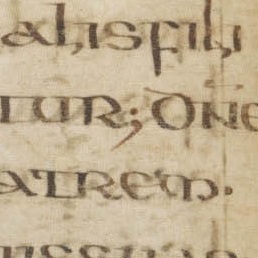 alis fili
tur; Dne
atrem.